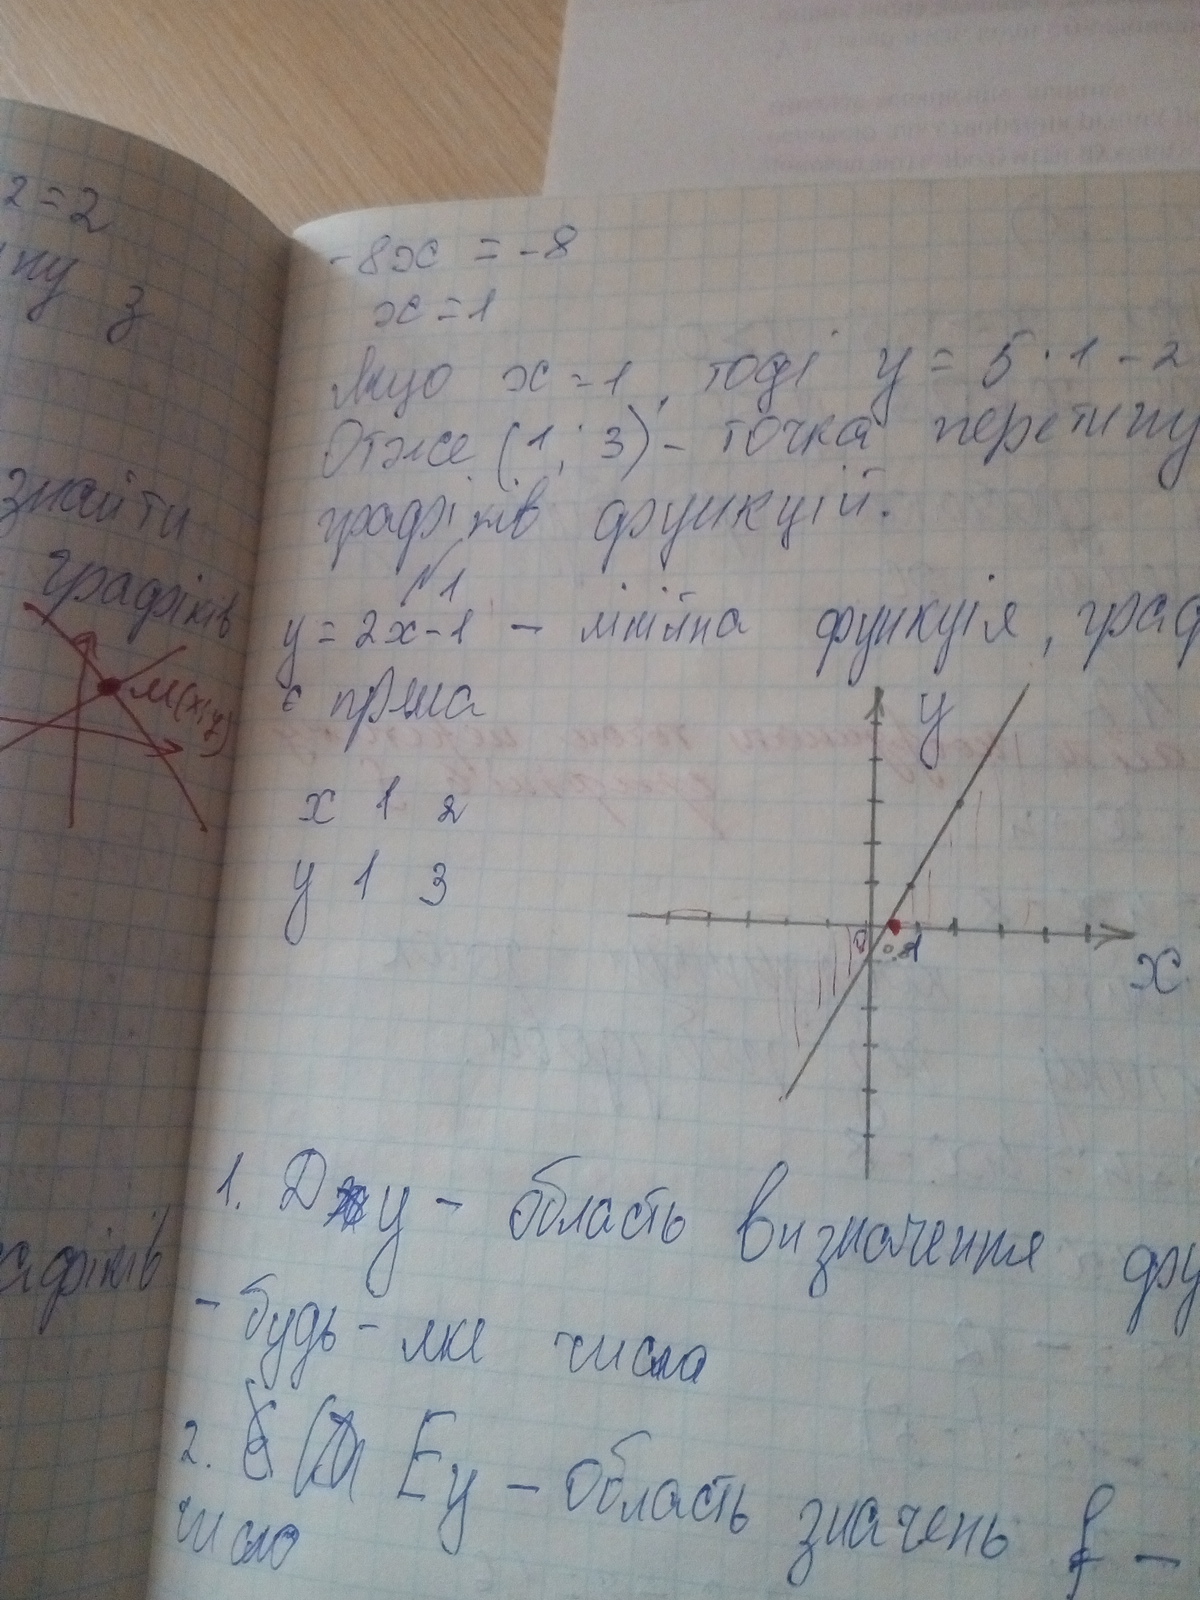 2=2
ну з
знайти
графіків
M(x;y)
афіків
-8x = -8
x = 1
Якщо x = 1, тоді y = 5 · 1 - 2
Отже (1; 3) - точка перетину
графіків функцій.
№1
y = 2x - 1 - лінійна функція, граф
є пряма
x 1 2
y 1 3
y
0
1
x
1. Dy - область визначення фу
- будь-яке число
2. Ey - область значень f -
число